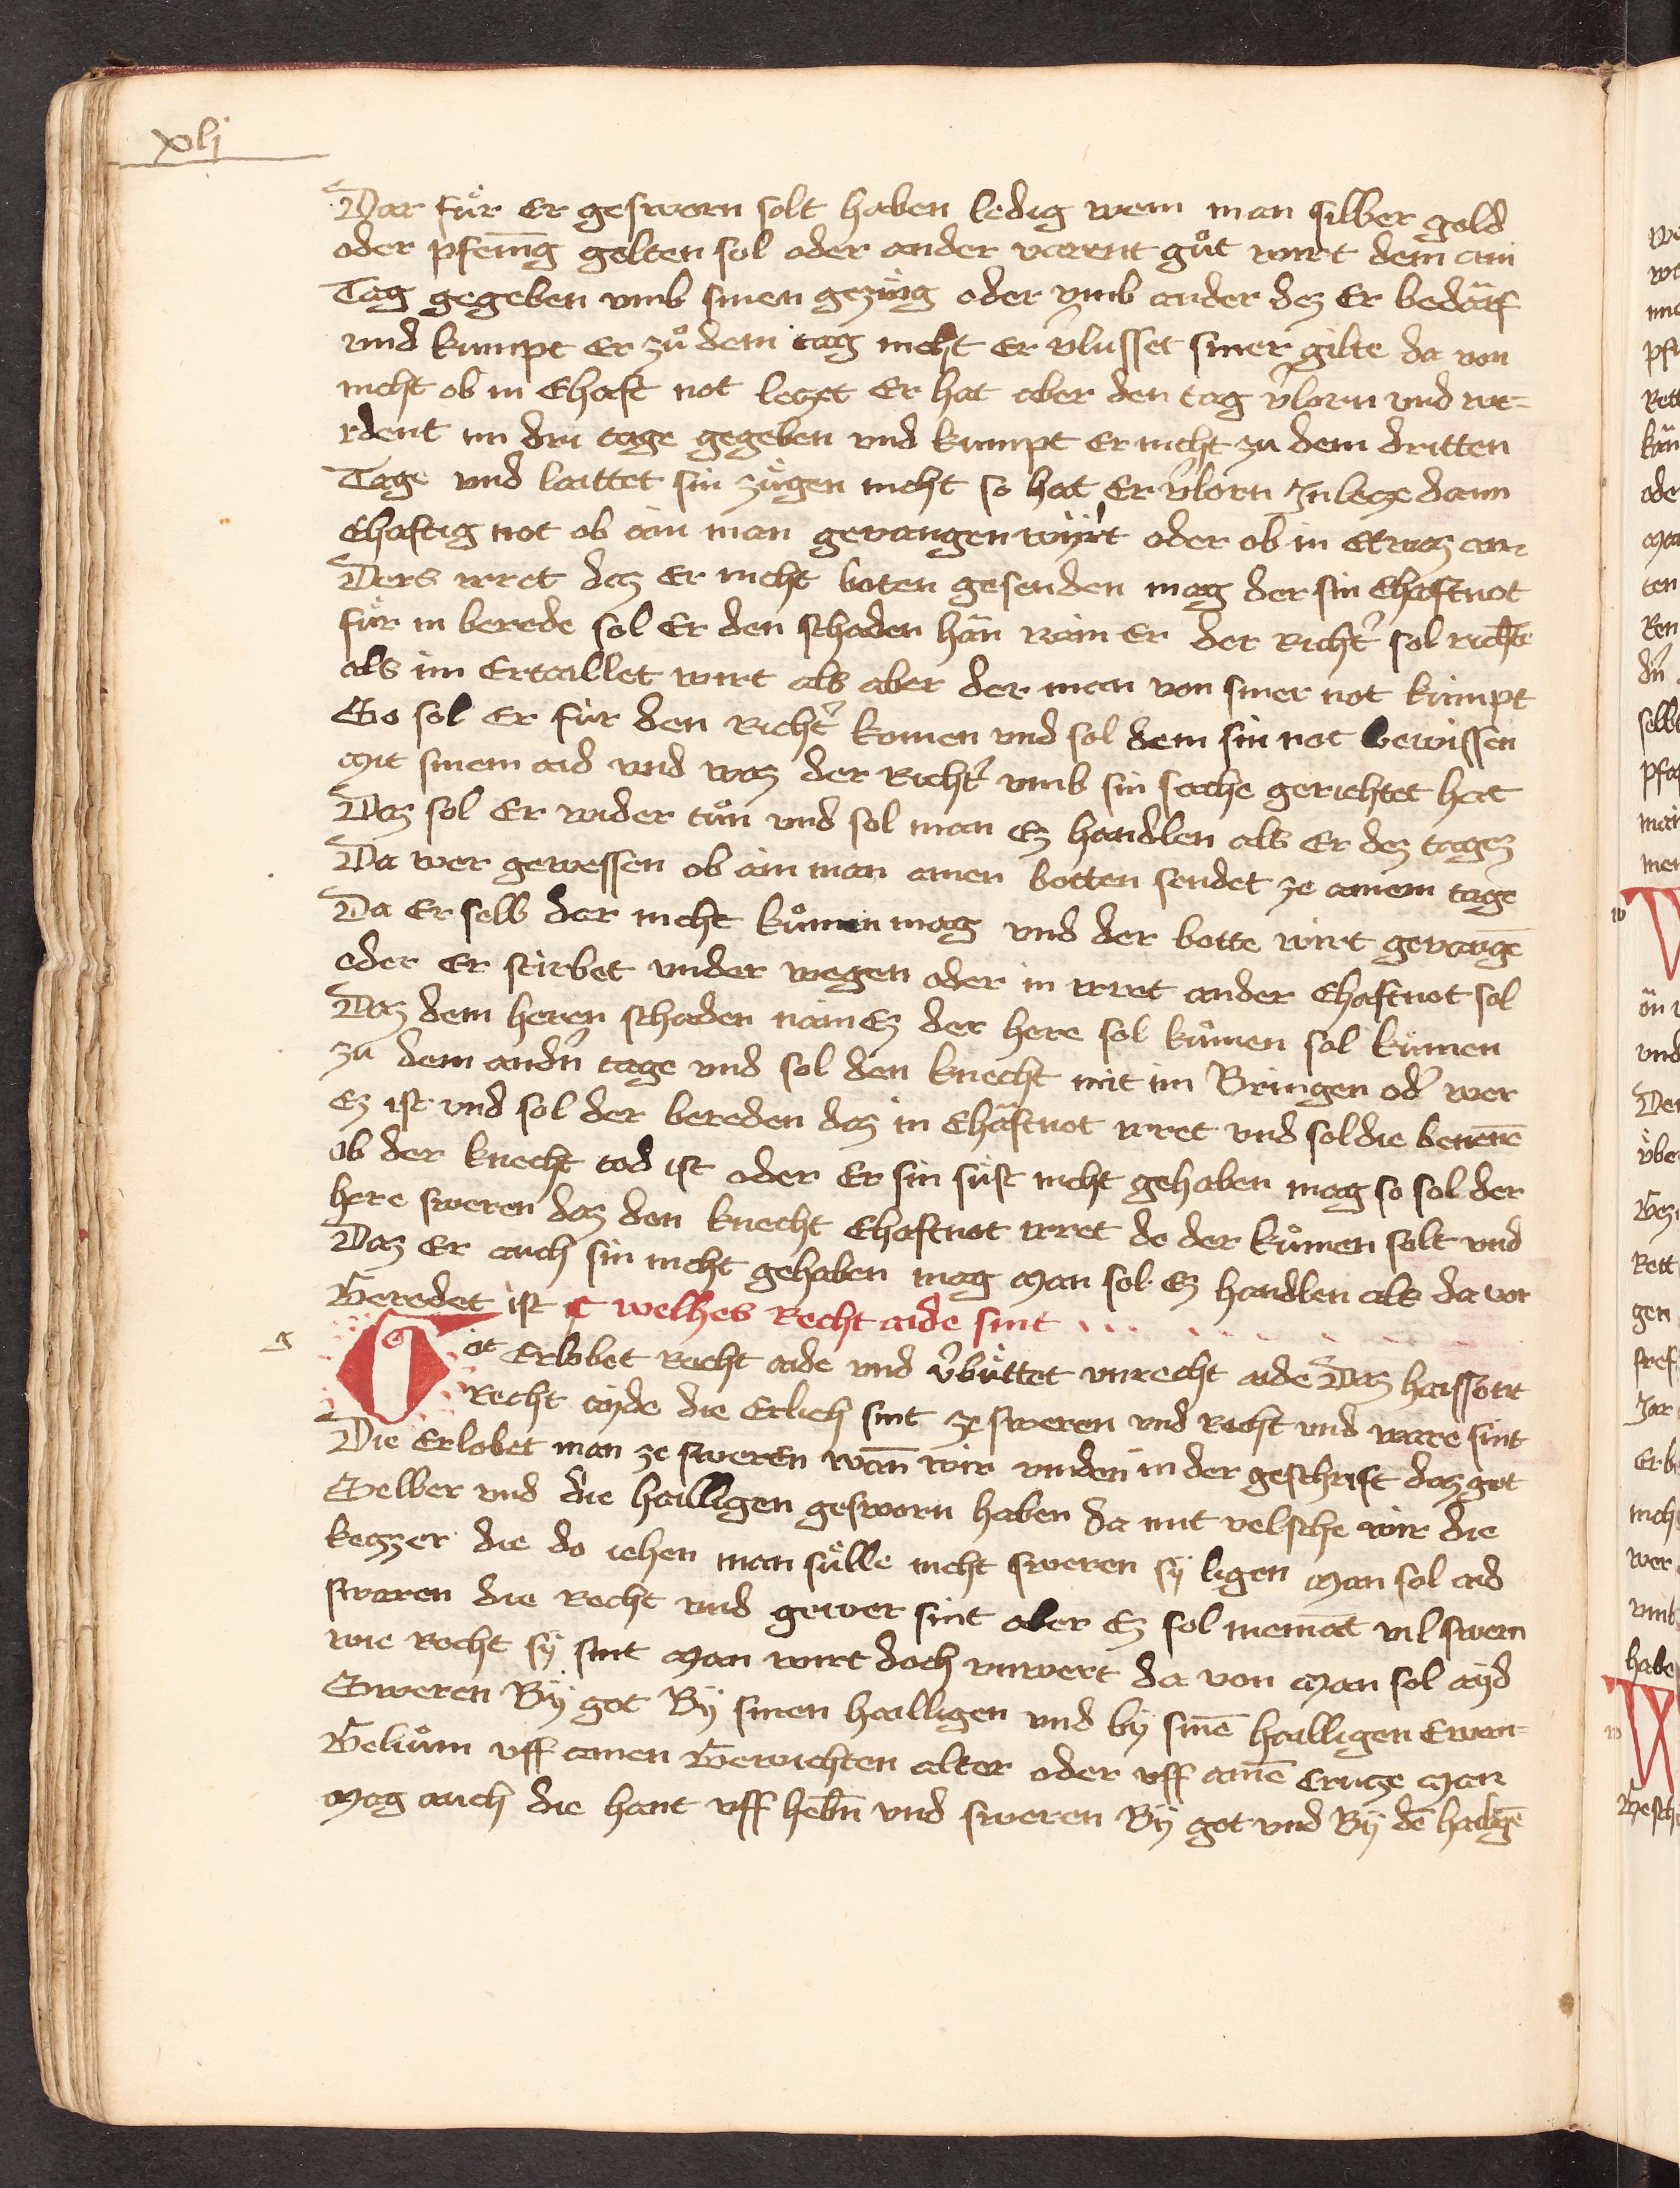 xlj
Dar fuͤr Er gesworn solt haben ledig wem man silber gold
oder pfenīg gelten sol oder ander varent guͦt wirt dem ain
Tag gegeben vmb sinen gezüg oder vmb ander dez Er bedarf
vnd kumpt Er zuͦ dem tag nicht Er v̉lusset siner gilte da von
nicht ob in Ehaft not leczet Er hat aber den tag v̉lorn vnd we-
rdent im dru tage gegeben vnd kumpt Er nicht zu dem dritten
Tage vnd laittet sin zuͤgen nicht so hat Er v̉lorn In lecze dann
Ehaftig not ob ain man gevangen wÿrt oder ob in etwaz an-
Ders irret daz Er nicht boten gesenden mag der sin Ehaftnot
fuͤr in berede sol Er den schaden hän nain Er der Richt̉ sol richtē
als im Ertaillet wirt als aber der man von siner not kumpt
So sol Er für den Richt̉ komen vnd sol dem sin not bewissen
Mit sinem aid vnd waz der Richt̉ vmb sin sache gerichtet hat
Daz sol Er wider tuͦn vnd sol man Ez handlen als Er dez tagez
Da wer gewessen ob ain man ainen botten sendet ze ainem tage
Da Er selb dar nicht kuͦmen mag vnd der botte wirt gevangē
oder Er stirbet vnder wegen oder in irret ander Ehaftnot sol
Daz dem heren schaden nain Ez der here sol kuͦmen sol kuͦmen
zu dem andn̉ tage vnd sol den knecht mit im Bringen od̉ wer
Ez ist vnd sol der bereden daz in Ehäftnot irret vnd sol die benenē
ob der knecht tod ist oder Er sin sust nicht gehaben mag so sol der
here sweren daz den knecht Ehaftnot irret do der kuͦmen solt vnd
Daz Er auch sin nicht gehaben mag Man sol Ez handlen als da vor
Beredet ist ¶ welhes Recht aide sint
g
Got Erlobet Recht aide vnd v̉buͤttet vnrecht aide Daz haissent
Recht aÿde die Erlich sint ze sweren vnd Recht vnd ware sint
Die Erlobet man ze sweren wan̄ wir vinden in der geschrift daz got
Selber vnd die hailligen gesworn haben da mit velsche wir die
keczzer die do iehen man suͤlle nicht sweren sÿ ligen Man sol aid
swaren die Recht vnd gewer sint aber Ez sol niemāt vil swern
wie Recht sÿ sint Man wirt doch vnwert da von Man sol aÿd
Sweren Bÿ got Bÿ sinen hailligen vnd bÿ sinē hailligen Ewan-
Geliuͦm vff ainen Gewichten alter oder vff ainē Crucze Man
Mag auch die hant vff hebn̄ vnd sweren Bÿ got vnd Bÿ dē hailgē